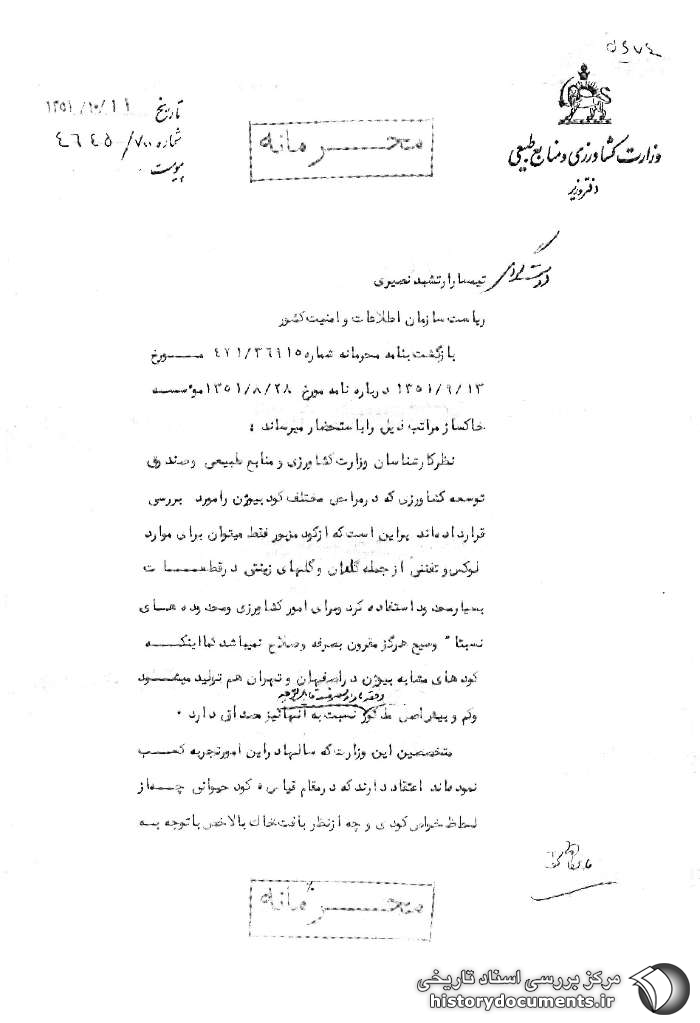 ۵۴۷۴
وزارت کشاورزی و منابع طبیعی
دفتر وزیر
تاریخ ۱۳۵۱/۱۰/۱۱
شماره ۷۰۰/ ۴۶۴۵
پیوست
محرمانه
تیمسار ارتشبد نصیری
ریاست سازمان اطلاعات و امنیت کشور
بازگشت بنامه محرمانه شماره ۴۷۱/۳۶۹۱۵ مورخ
۱۳۵۱/۹/۱۳ درباره نامه مورخ ۱۳۵۱/۸/۲۸ مؤسسه
خاکساز مراتب ذیل را باستحضار میرساند :
نظر کارشناسان وزارت کشاورزی و منابع طبیعی و صندوق
توسعه کشاورزی که در مراحل مختلف کود بیوژن را مورد بررسی
قرار داده‌اند براین است که از کود مزبور فقط میتوان برای موارد
لوکس و تفننی از جمله گلدان و گلهای زینتی در قطعات
بسیار محدود استفاده کرد و برای امور کشاورزی و محدوده های
نسبتا" وسیع هرگز مقرون بصرفه و صلاح نمیباشد کما اینکه
کود های مشابه بیوژن در اصفهان و تهران هم تولید میشود
نسبت به آنها نیز دارد .
متخصصین این وزارت که سالها در این امور تجربه کسب
نموده‌اند اعتقاد دارند که در مقام قیاس کود حیوانی چه از
لحاظ خواص کودی و چه از نظر بافت خاک بالاخص با توجه به
محرمانه
مرکز بررسی اسناد تاریخی
historydocuments.ir